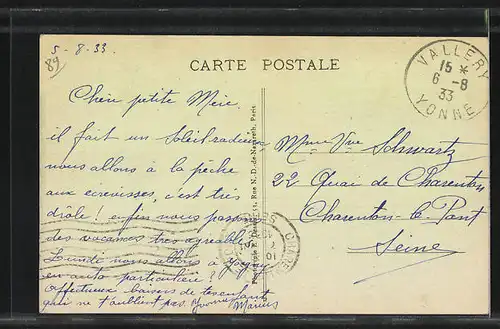 5-8-33.
89
CARTE POSTALE
VALLERY
15 *
6 -8
33
YONNE
Chère petite Mère.
il fait un Soleil radieux
nous allons à la pêche
aux écrevisses, c'est très
drôle ! enfin nous passons
des vacances très agréables
Lundi nous allons à
en auto particulière !
affectueux baisers de tes enfants
qui ne t'oublient pas. Yvonne
Marius
Rue N.-D.-de-Nazareth, Paris
Mme Vve Schwartz
22 Quai de Charenton
Charenton-le-Pont
Seine